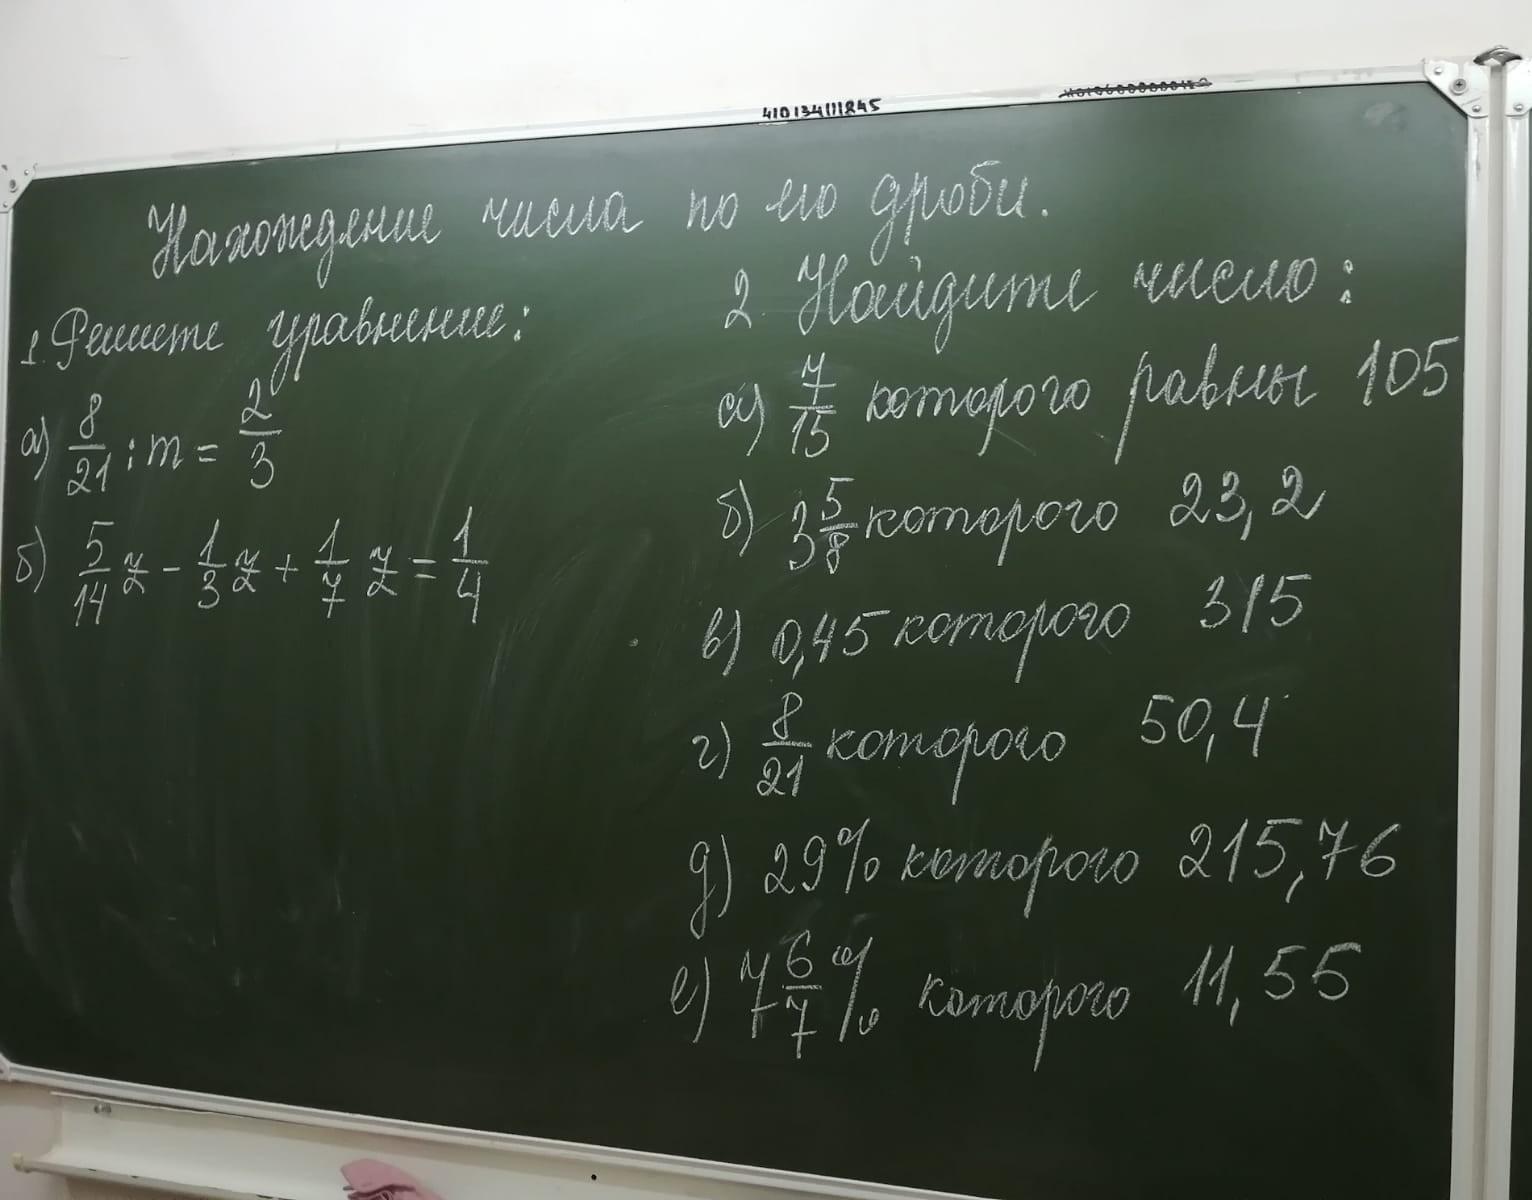 410134111845
Нахождение числа по его дроби.
1. Решите уравнение:
а) 8/21 : m = 2/3
б) 5/14 z - 1/3 z + 1/7 z = 1/4
2. Найдите число:
а) 7/15 которого равны 105
б) 3 5/8 которого 23,2
в) 0,45 которого 315
г) 8/21 которого 50,4
д) 29% которого 215,76
е) 7 6/7 % которого 11,55